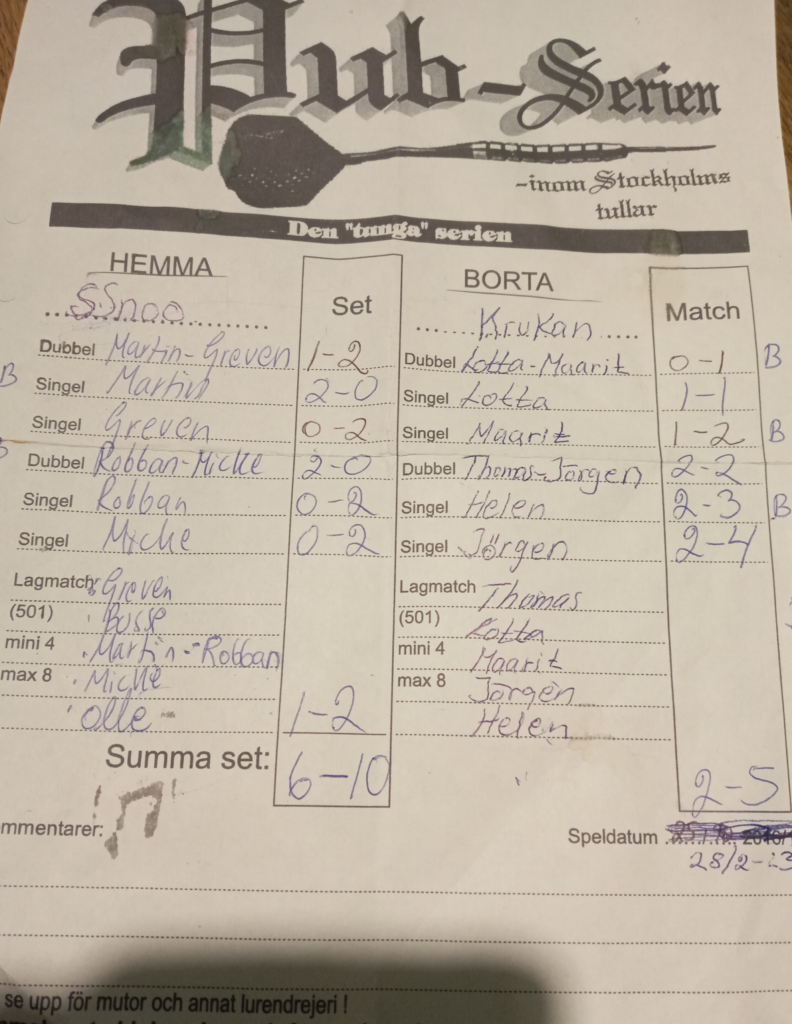 Pub-Serien
-inom Stockholms
tullar
Den "tunga" serien
HEMMA Set BORTA Match
SSnoo Krukan
Dubbel Martin-Greven 1-2 Dubbel Lotta-Maarit 0-1 B
B Singel Martin 2-0 Singel Lotta 1-1
Singel Greven 0-2 Singel Maarit 1-2 B
Dubbel Robban-Micke 2-0 Dubbel Thomas-Jörgen 2-2
Singel Robban 0-2 Singel Helen 2-3 B
Singel Micke 0-2 Singel Jörgen 2-4
Lagmatch Greven Lagmatch Thomas
(501) Bosse (501) Lotta
mini 4 Martin-Robban mini 4 Maarit
max 8 Micke max 8 Jörgen
Olle 1-2 Helen
Summa set: 6-10 2-5
mmentarer: Speldatum
28/2-23
se upp för mutor och annat lurendrejeri !